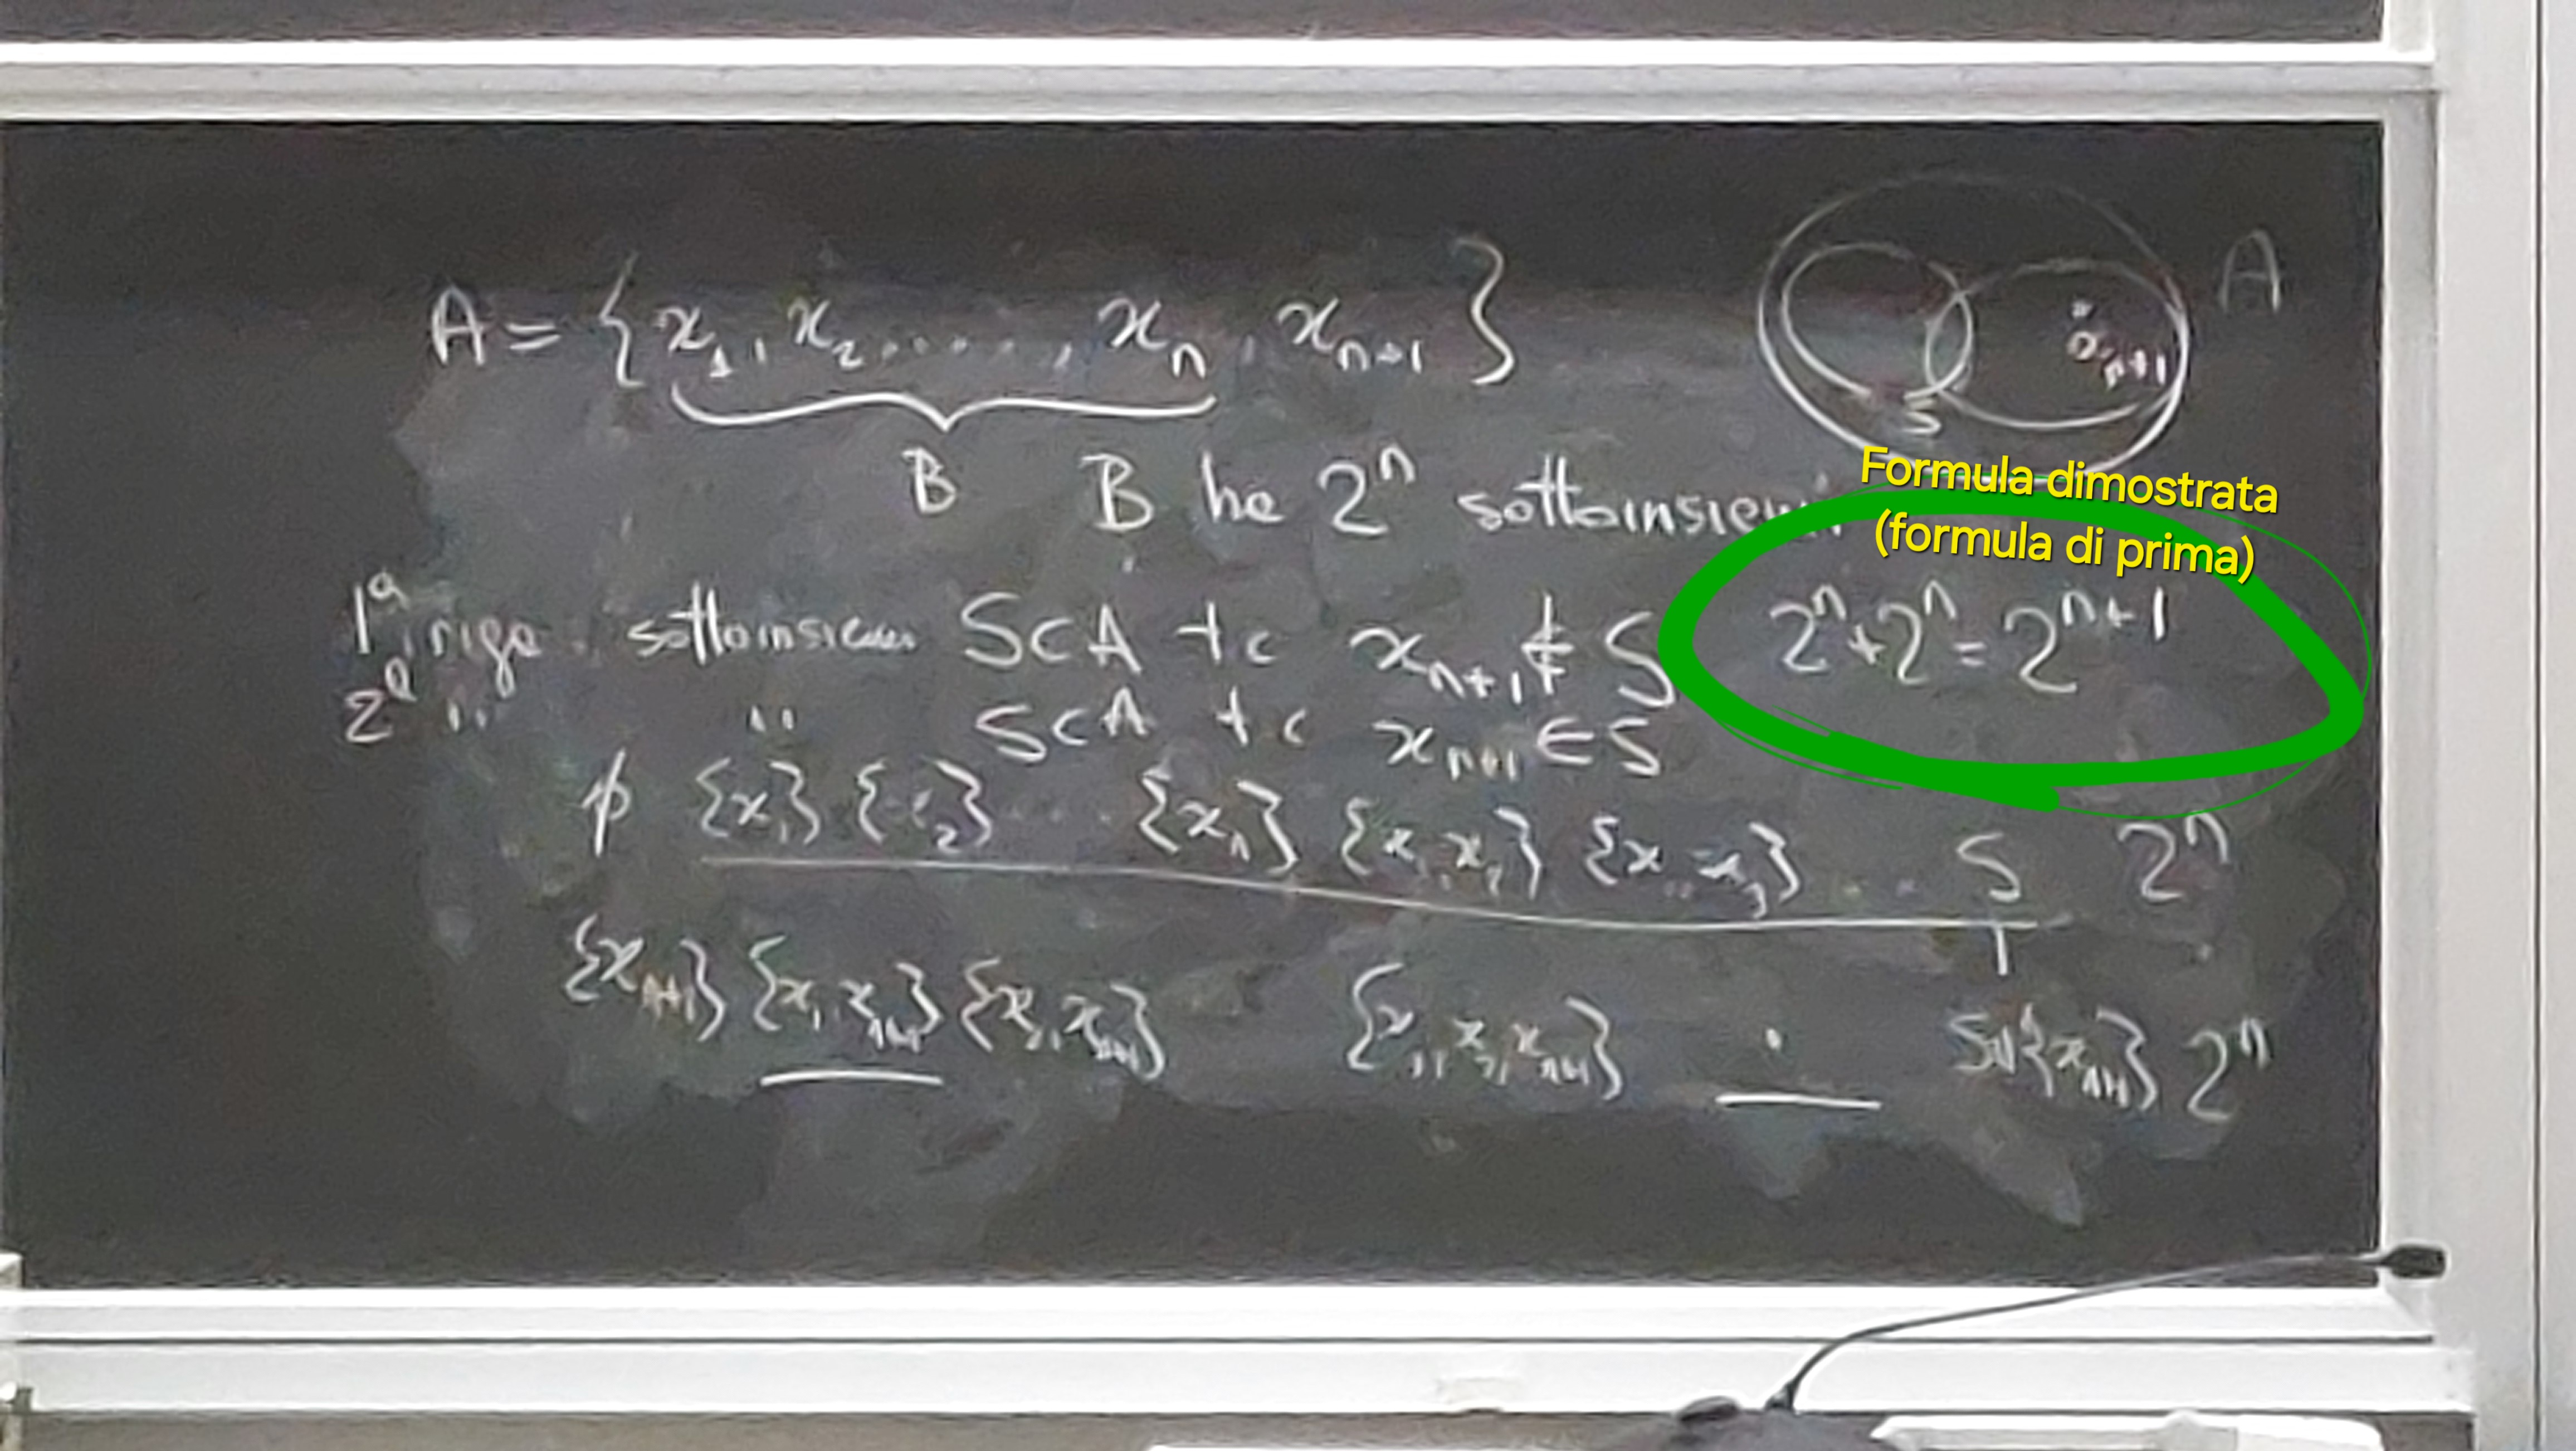 A = { x₁, x₂, ....., xₙ, xₙ₊₁ }
A
xₙ₊₁
S
B
B ha 2ⁿ sottoinsiemi
Formula dimostrata
(formula di prima)
1ª riga sottoinsiemi S⊂A tc xₙ₊₁ ∉ S
2ⁿ+2ⁿ=2ⁿ⁺¹
2ª " " S⊂A tc xₙ₊₁ ∈ S
∅ {x₁} { ₂} .... {xₙ} {x₁,x₂} {x₁,x₃} ... S 2ⁿ
{xₙ₊₁} {x₁,xₙ₊₁} {x₂,xₙ₊₁} {x₁,x₂,xₙ₊₁} . S∪{xₙ₊₁} 2ⁿ